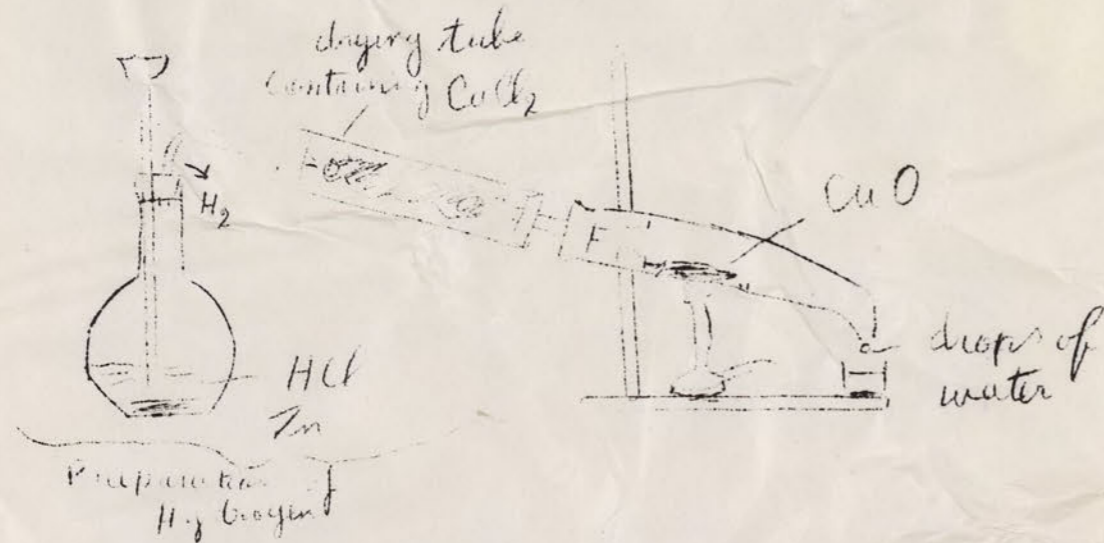 drying tube
containing CaCl2
H2
CuO
HCl
Zn
drops of
water
Preparation of
Hydrogen